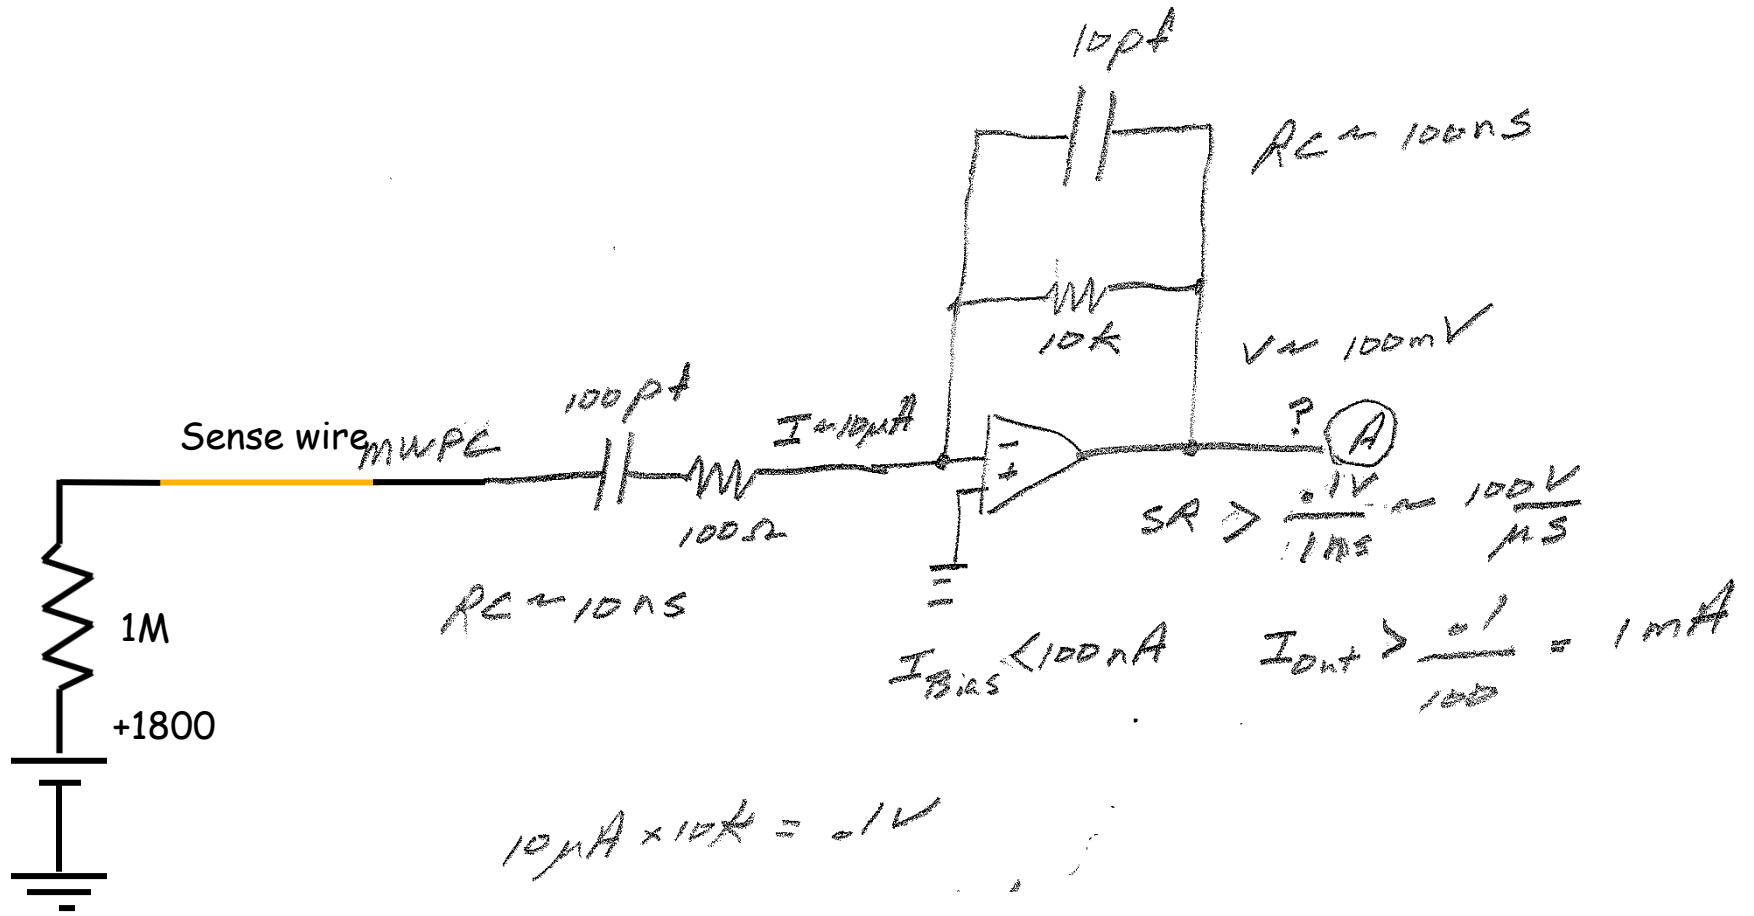 10pf
RC ~ 100ns
10k
V ~ 100mV
100pf
I ~ 10μA
Sense wire
MWPC
?
A
-
+
100Ω
SR > .1V / 1ns ~ 100V / μs
RC ~ 10ns
1M
I Bias < 100nA
I out > .1 / 100 = 1mA
+1800
10μA x 10k = .1V